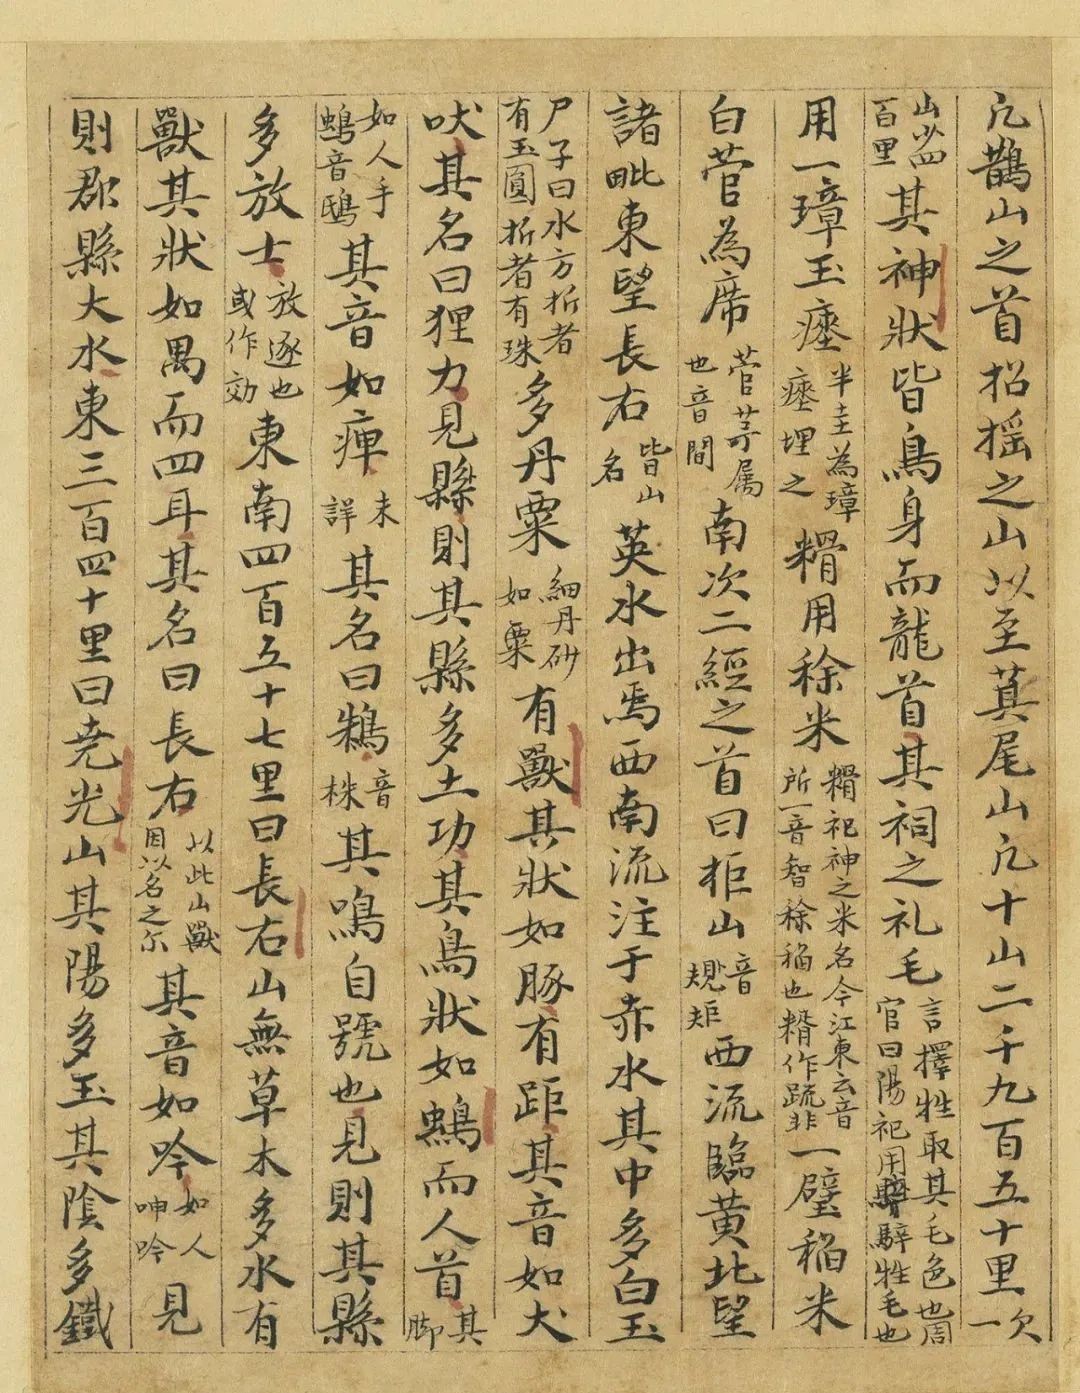 凢鵲山之首招揺之山以至萁尾山凢十山二千九百五十里一次
山必四百里其神狀皆鳥身而龍首其祠之礼毛言擇牲取其毛色也周官曰陽祀用騂牲毛也
用一璋玉瘞半圭為璋瘞埋之糈用稌米糈祀神之米名今江東云音所一音智稌稻也糈作䟽非一璧稻米
白菅為席菅茅属也音間南次二經之首曰柜山音䂓矩西流臨黄北望
諸毗東望長右皆山名英水出焉西南流注于赤水其中多白玉
尸子曰水方折者有玉圓折者有珠多丹粟細丹砂如粟有獸其狀如豚有距其音如犬
吠其名曰狸力見縣則其縣多土功其鳥狀如鴟而人首其脚
如人手鴟音鵄其音如痺未詳其名曰鴸音株其鳴自號也見則其縣
多放士放逐也或作効東南四百五十七里曰長右山無草木多水有
獸其狀如禺而四耳其名曰長右以此山獸因以名之尓其音如吟如人呻吟見
則郡縣大水東三百四十里曰尭光山其陽多玉其隂多鐵